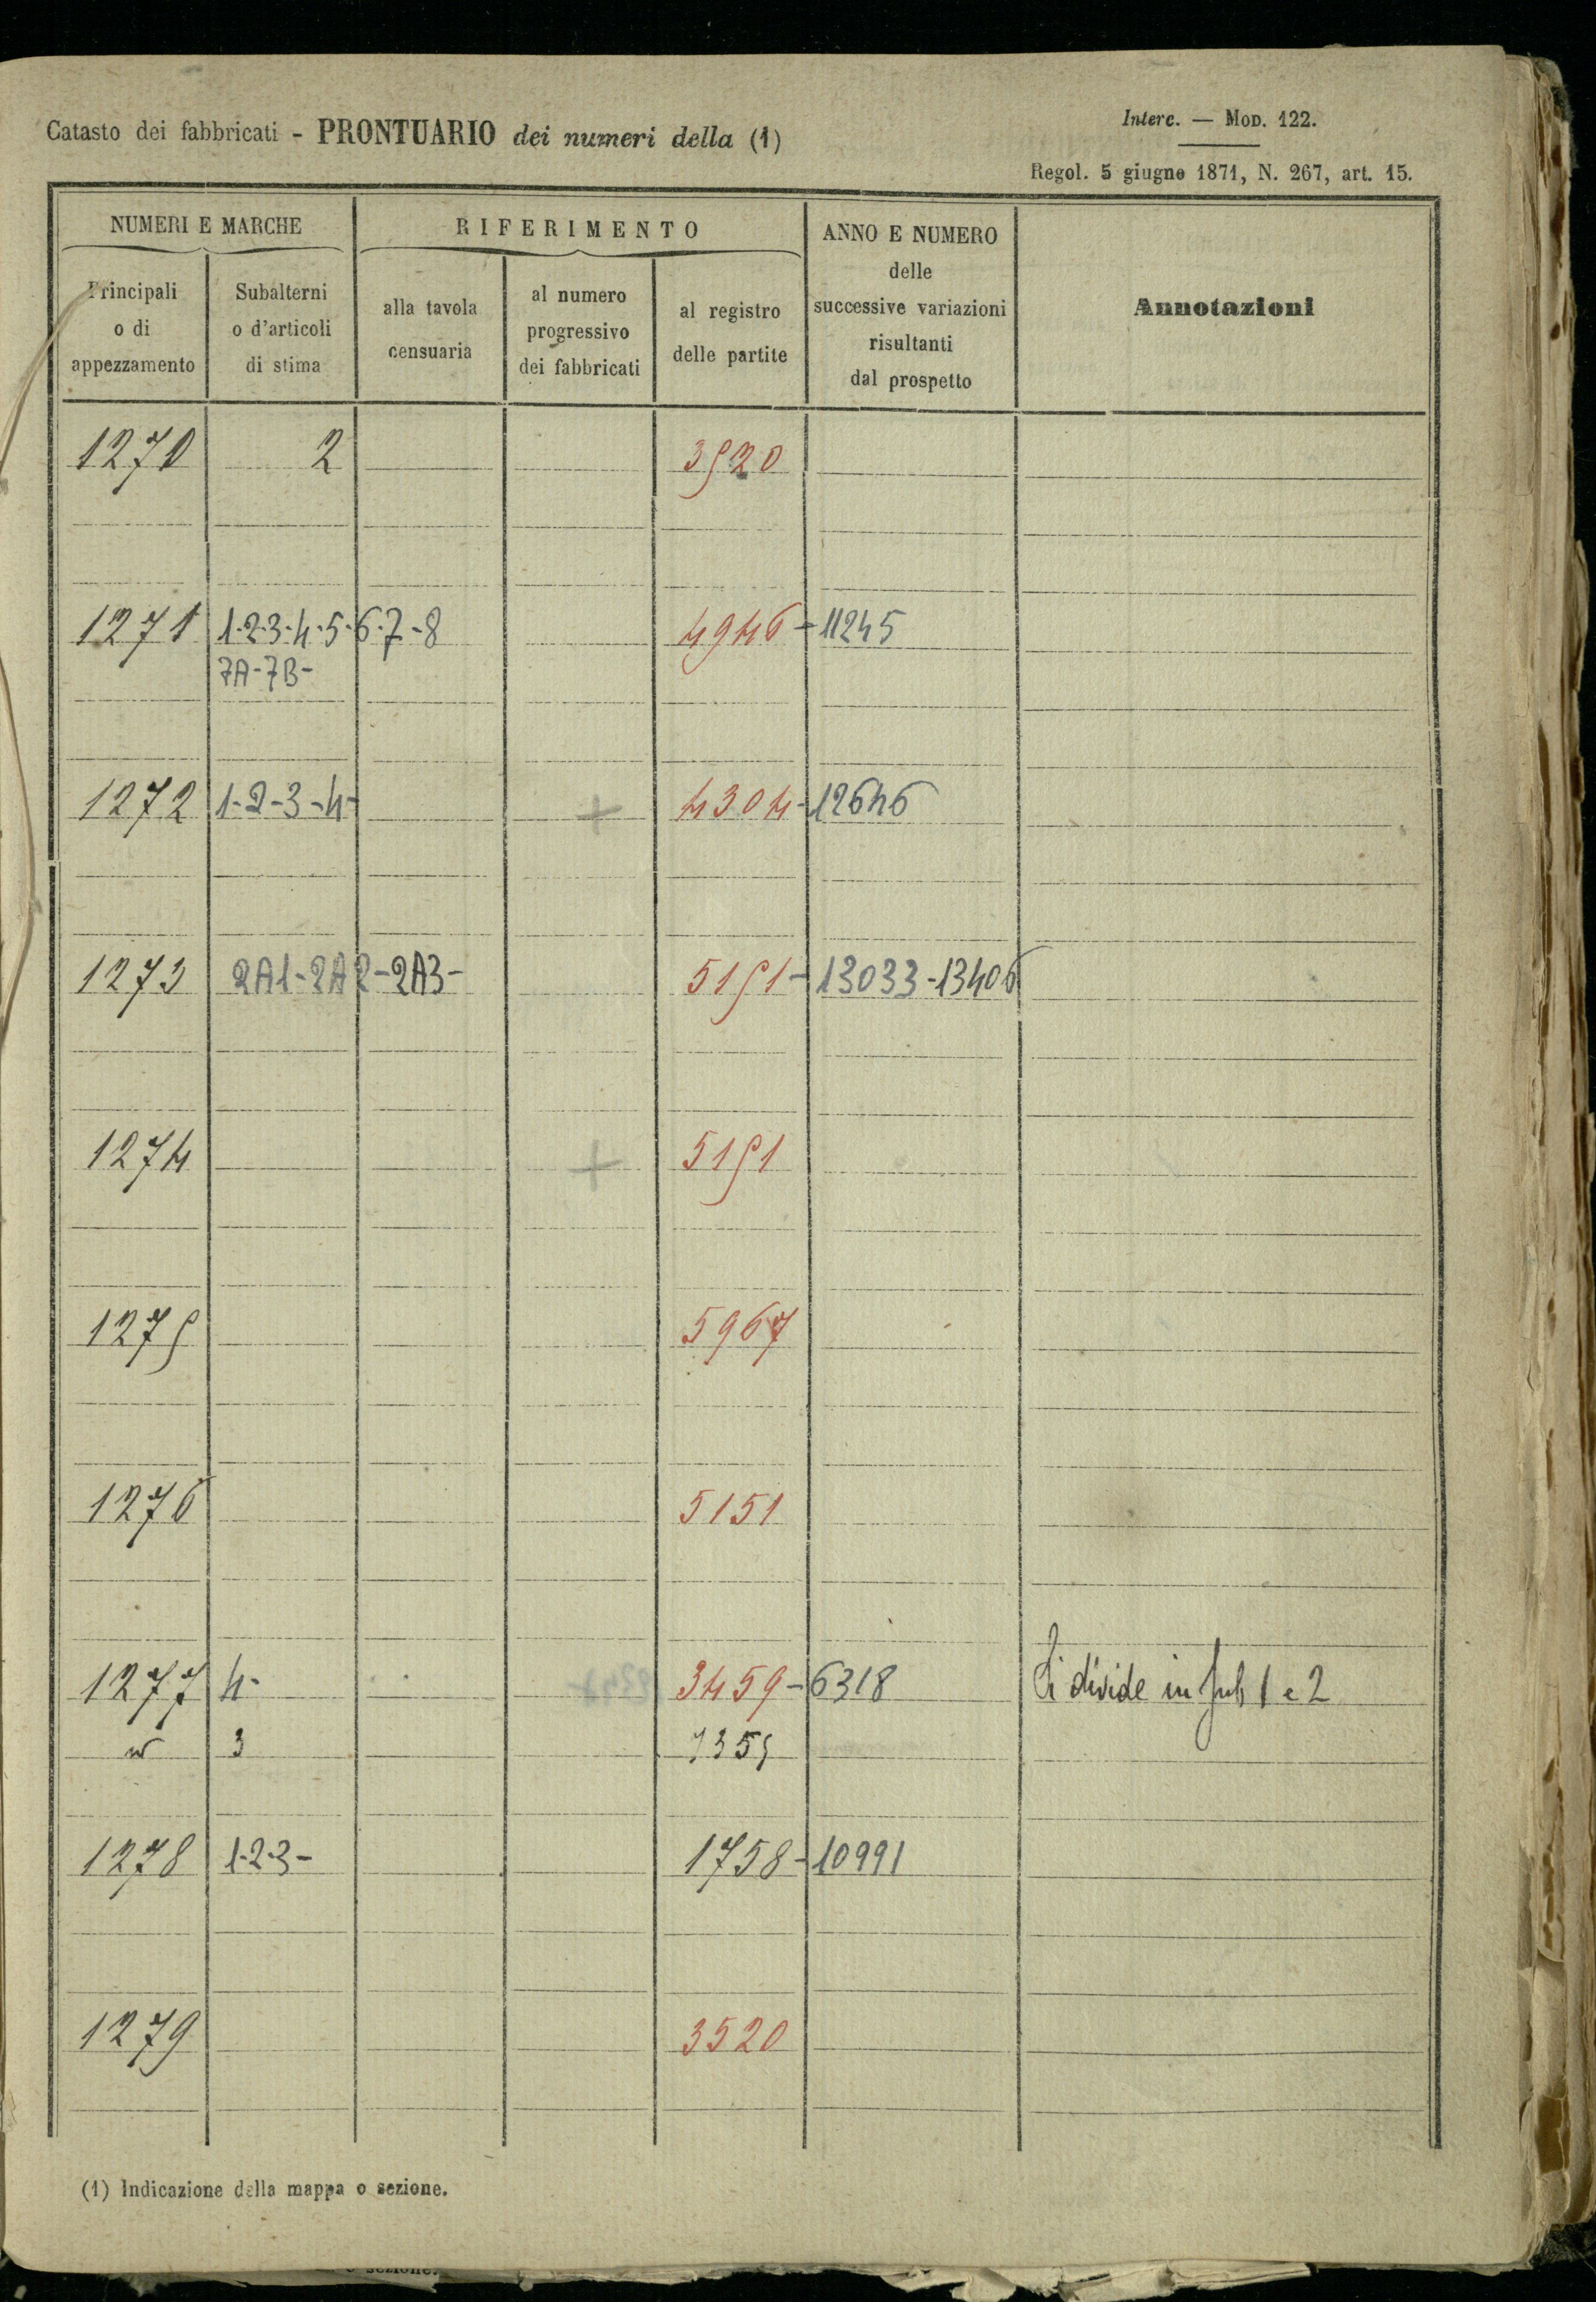 Catasto dei fabbricati - PRONTUARIO dei numeri della (1)
Interc. — MOD. 122.
Regol. 5 giugno 1871, N. 267, art. 15.
NUMERI E MARCHE
RIFERIMENTO
ANNO E NUMERO delle successive variazioni risultanti dal prospetto
Annotazioni
Principali o di appezzamento
Subalterni o d'articoli di stima
alla tavola censuaria
al numero progressivo dei fabbricati
al registro delle partite
1270 2 3520
1271 1-2-3-4-5-6-7-8 4946-11245
7A-7B-
1272 1-2-3-4- + 4304-12646
1273 2A1-2A2-2A3- 5151-13033-13406
1274 + 5151
1275 5967
1276 5151
1277 4- 3459-6318 Si divide in sub 1 e 2
3 7355
1278 1-2-3- 1758-10991
1279 3520
(1) Indicazione della mappa o sezione.
sezione.